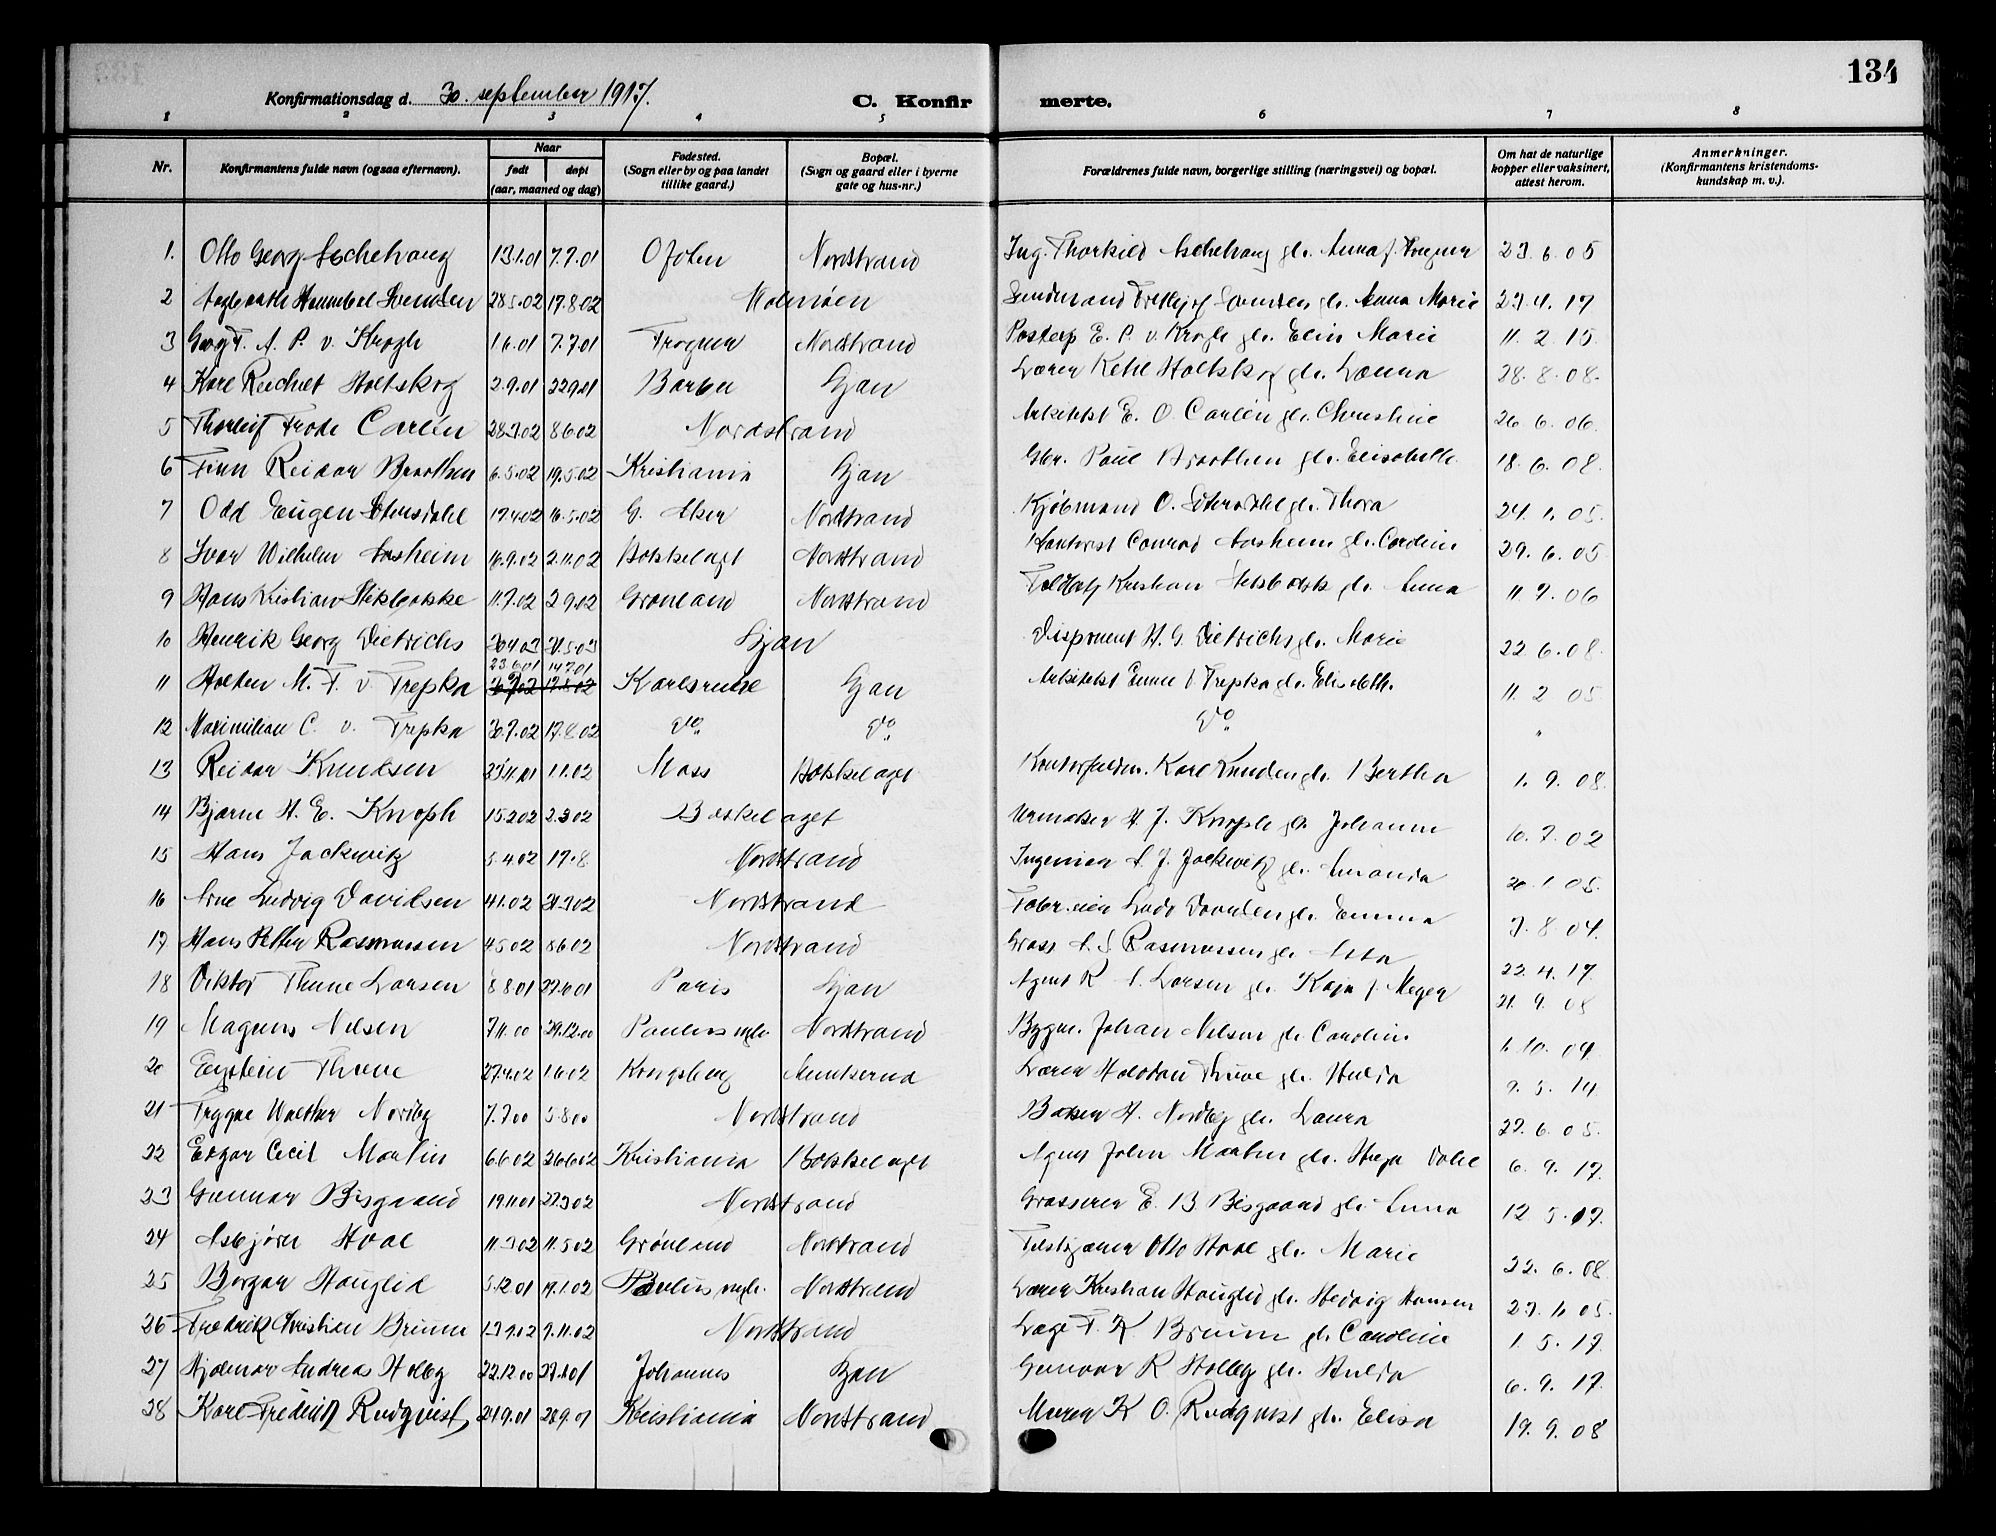 134
Konfirmationsdag d. 30. september 1917.
C. Konfirmerte.
1 2 3 4 5 6 7 8
Nr. Konfirmantens fulde navn (ogsaa efternavn). Naar født døpt (aar, maaned og dag) Fødested. (Sogn eller by og paa landet tillike gaard.) Bopæl. (Sogn og gaard eller i byerne gate og hus-nr.) Forældrenes fulde navn, borgerlige stilling (næringsvei) og bopæl. Om hat de naturlige kopper eller vaksinert, attest herom. Anmerkninger. (Konfirmantens kristendomskundskap m. v.).
1. Otto Georg Aschehoug 13.1.01 7.7.01 Nordstrand Ing. Thorkild Aschehoug gb. Anna f. 23. 6. 05
2 Svendsen 28.5.02 17.8.02 Malmøen Svendsen gb. Anna Marie
3 Georg F. A. P. v. Krogh 1.6.01 7.7.01 Frogner Nordstrand Postexp E. P. v. Krogh gb. Elin Marie 11. 2. 15.
4 Kåre Reichelt Holtskog 2.9.01 22901 Ljan Lærer Ketil Holtskog gb. Laura 28. 8. 08.
5 Thorleif Frode Carlén 28.3.02 8602 Nordstrand Arkitekt E. O. Carlén gb. Christine 26. 6. 06.
6 Finn Reidar Braathen 6.5.02 19.5.02 Kristiania Ljan Gbr. Paul Braathen gb. Elisabeth 18. 6. 08.
7 Odd Eugen 17402 16.5.02 G. Aker Nordstrand Kjøbmand O. gb. Thora 24. 1. 05.
8 Ivar Wilhelm Aasheim 16.9.02 2.11.02 Bækkelaget Nordstrand Conrad Aasheim gb. 29. 6. 05
9 Hans Kristian Stiksbakke 11.7.02 2902 Grønland Nordstrand Kristian gb. Anna 11 7. 06
10 Henrik Georg Dietrichs Ljan Disponent H. G. Dietrichs gb. Marie 22 6. 08.
11 M. T. v. Trepka 23601 14701 Karlsruhe Ljan Arkitekt v Trepka gb. Elisabeth. 11. 2 05
12 Maximilian C. v. Trepka 30.7.02 17.8.02 do. do. do. "
13 Reidar Knudsen 1.1.02 Moss Bækkelaget Karl Knudsen gb. Bertha 1. 9. 08.
14 Bjarne H. E. Knoph 15202 2302 Bækkelaget Urmaker H. J. Knoph gb. Johanne 10. 7. 02
15 Hans Jackwitz 5.4.02 17.8 Nordstrand Ingeniør A. J. Jackwitz gb. Amanda 20. 1. 05.
16 Arne Ludvig Davidsen 4102 Nordstrand Ludv Davidsen gb. Emma 7. 8. 04.
17 Hans Petter Rasmussen 4502 8602 Nordstrand Gross A. S Rasmussen gb. 22. 4. 17.
18 Viktor Thune Larsen 8801 Paris Ljan Agent K A. Larsen gb. Kaja f. Meyer 21. 9. 08
19 Magnus Nilsen 7.11.00 29.12.00 Paulus mgh. Nordstrand Bygm. Johan Nilsen gb. Caroline 1. 10. 04.
20 Eystein Thune 27.4.02 1602 Kongsberg Lærer Halvdan Thune gb. Hulda 9. 5. 14
21 Trygve Walther Nordby 7.7.00 5.8.00 Nordstrand Baker H. Nordby gb. Laura 22. 6. 05.
22 Edgar Cecil 6602 26602 Kristiania Bækkelaget Agent John gb. 6. 9. 17.
23 Gunnar Bisgaard 191101 27302 Nordstrand Grosserer E. B Bisgaard gb. Anna 12. 5. 17.
24 Asbjørn Hoel 11302 11.5.02 Grønland Nordstrand Otto Hoel gb. Marie 22. 6. 08
25 Borgar Hauglid 5.12.01 19.1.02 Paulus mgh. Nordstrand Lærer Kristian Hauglid gb. Hedvig Hansen 27. 1. 05.
26 Fredrik Christian Bruun 13902 9.11.02 Nordstrand Læge F. K. Bruun gb. Caroline 1. 5. 17.
27 Hjalmar Andreas Holby 22.12.00 Johannes Ljan R Holby gb. Hulda 6. 9. 17.
28 Karl Fredrik Rudqvist 24901 Kristiania Nordstrand Murer K O. Rudqvist gb. Elisa 19. 9. 08